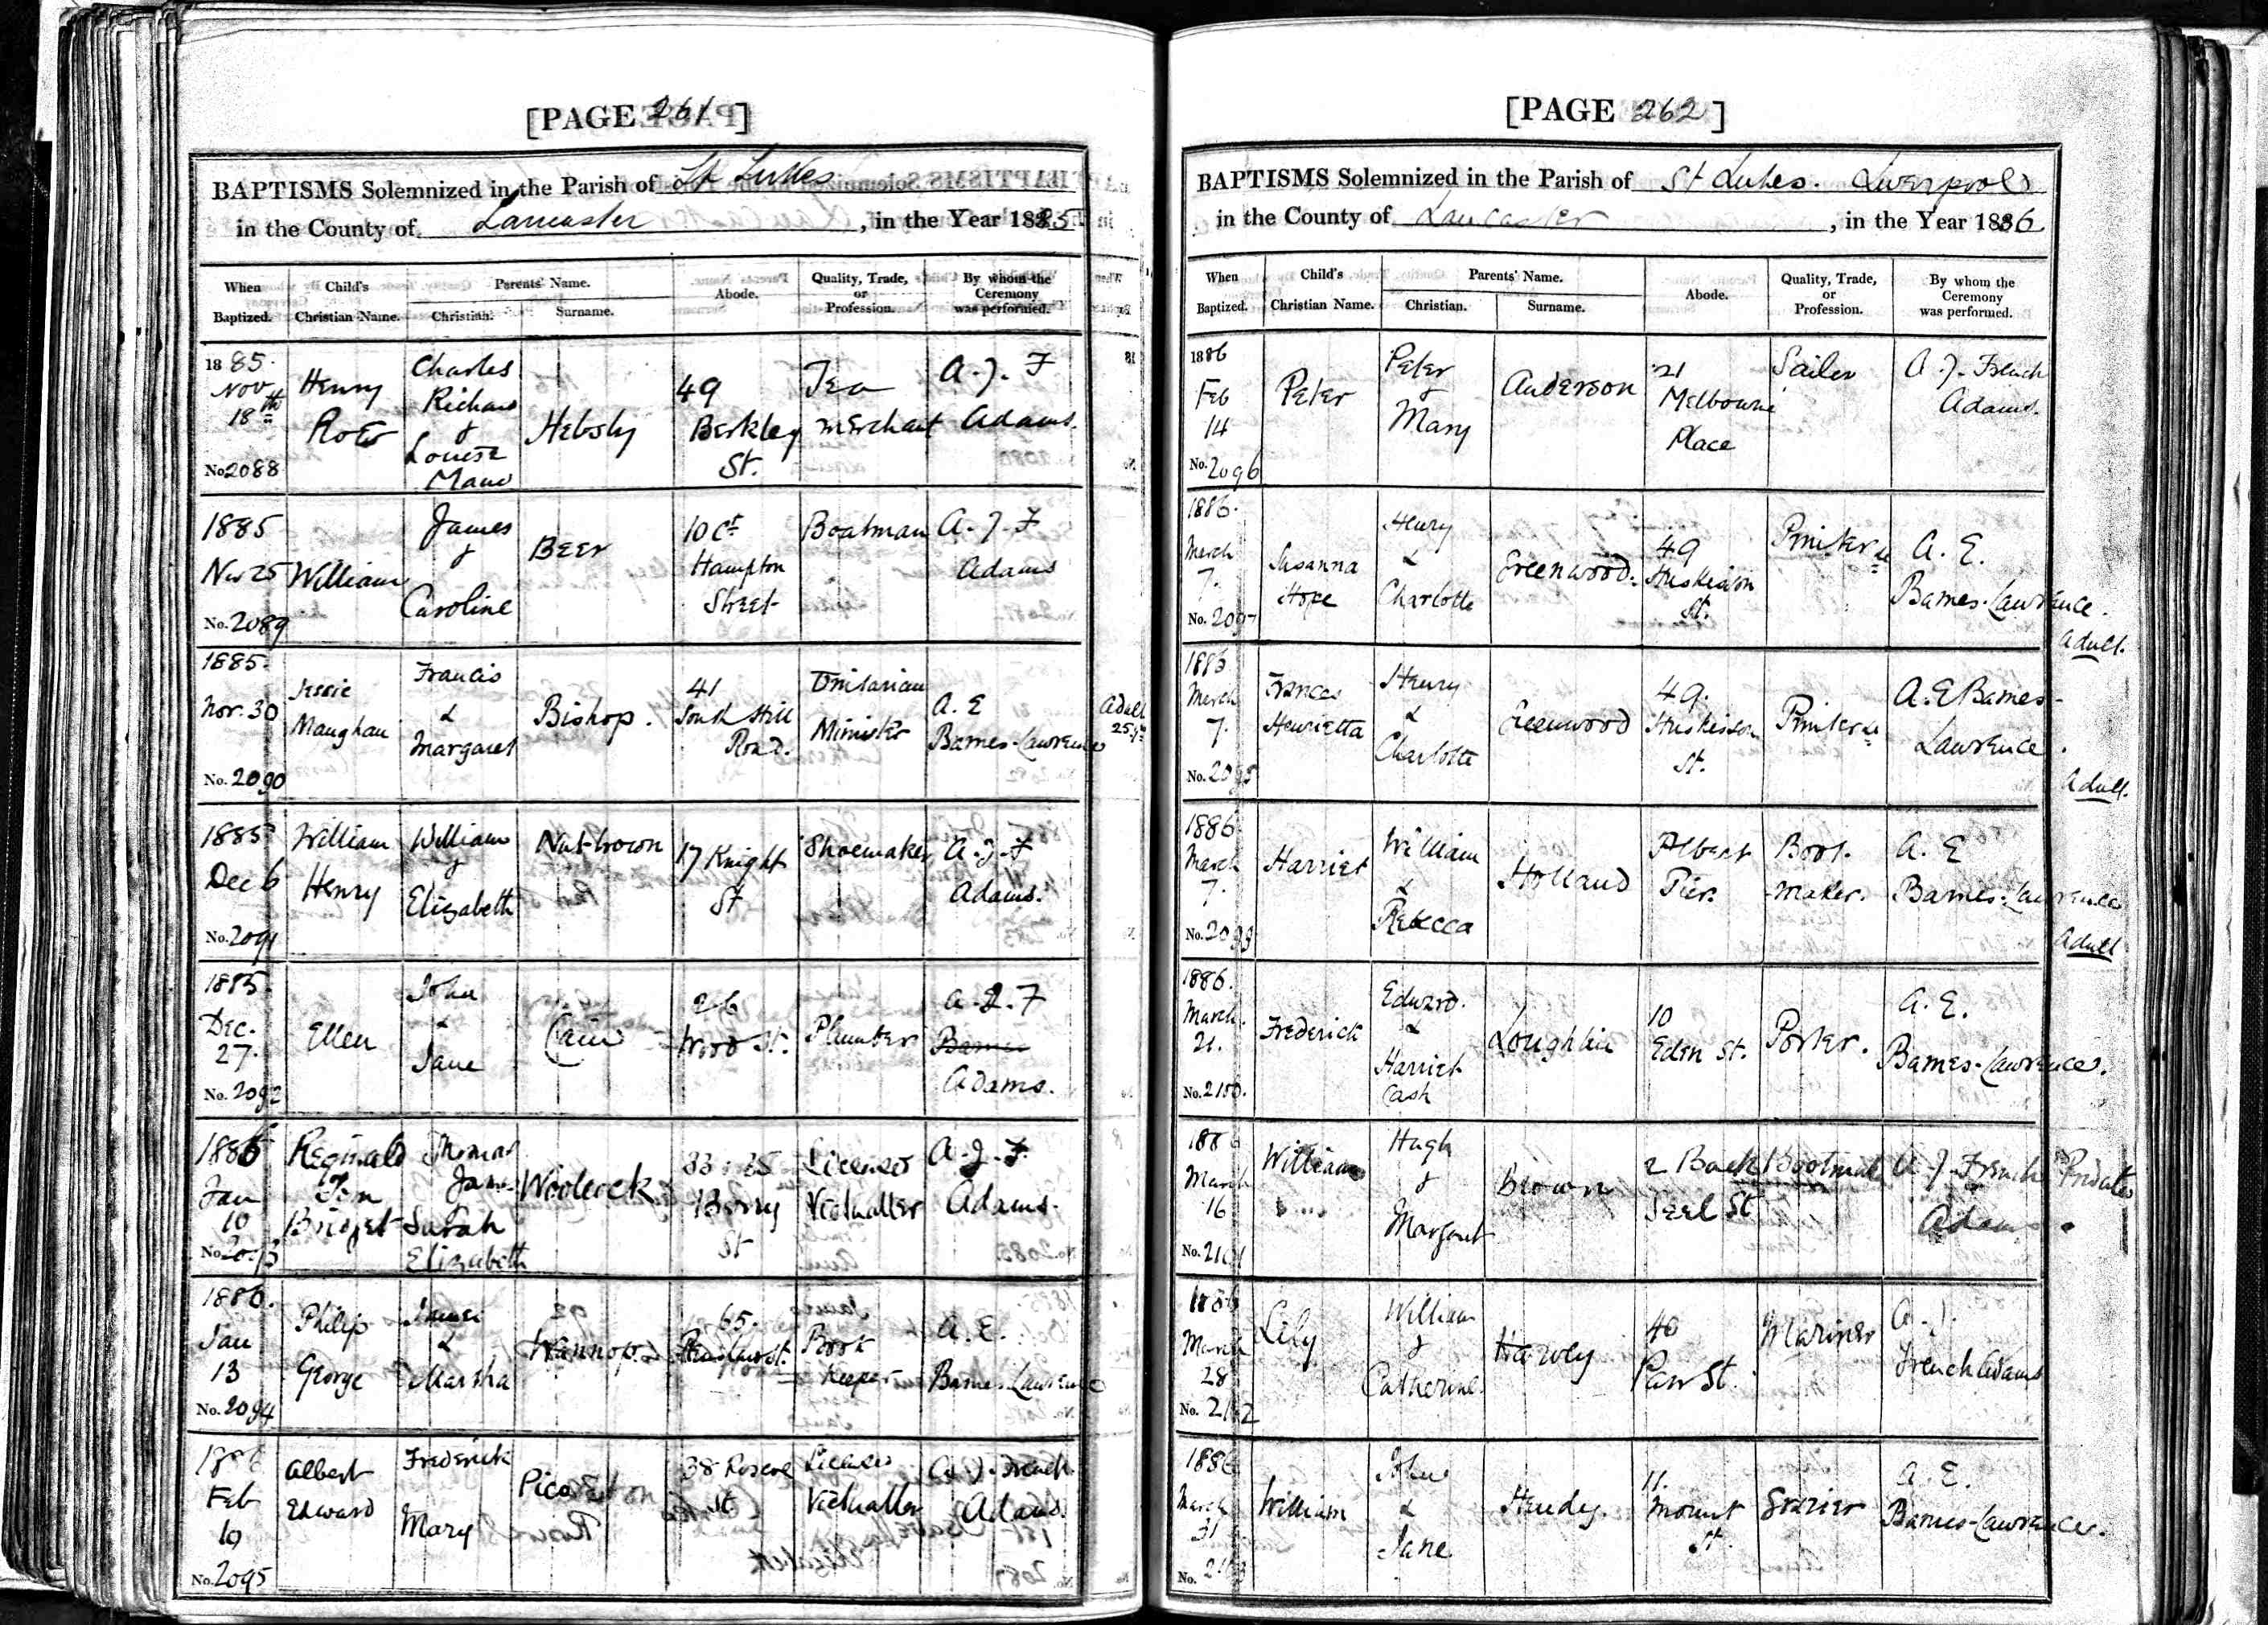 [PAGE 261]
BAPTISMS Solemnized in the Parish of St Lukes
in the County of Lancaster, in the Year 1885
When Baptized.
Child's Christian Name.
Parents' Name.
Christian.
Surname.
Abode.
Quality, Trade, or Profession.
By whom the Ceremony was performed.
1885.
Nov
18th
No. 2088
Henry
Charles
Richard
&
Louisa
Maud
Helsby
49
Berkley
St.
Tea
merchant
A. J. F
Adams.
1885
Nov 25
No. 2089
William
James
&
Caroline
Beer
10 Ct
Hampton
Street
Boatman
A. J. F
Adams
1885.
Nov. 30
No. 2090
Jessie
Maughan
Francis
&
Margaret
Bishop.
41
South Hill
Road.
Unitarian
Minister
A. E
Barnes-Lawrence
Adult
1885
Dec 6
No. 2091
William
Henry
William
&
Elizabeth
Nutbrown
17 Knight
St
Shoemaker
A. J. F
Adams.
1885.
Dec.
27.
No. 2092
Ellen
John
&
Jane
Cain
26
Wood St.
Plumber
A. J. F
Barnes
Adams.
1886
Jan
10
No. 2093
Reginald
Tom
Bridget
Thomas
James
Sarah
Elizabeth
Woolcock
33 & 35
Berry
St
Licensed
Victualler
A. J. F
Adams.
1886.
Jan
13
No. 2094
Philip
George
James
&
Martha
65.
Book
Keeper
A. E.
Barnes-Lawrence
1886
Feb
10
No. 2095
Albert
Edward
Frederick
Mary
38 Roscoe
St.
Licensed
Victualler
A. J. French
Adams.
[PAGE 262]
BAPTISMS Solemnized in the Parish of St Lukes. Liverpool
in the County of Lancaster, in the Year 1886
When Baptized.
Child's Christian Name.
Parents' Name.
Christian.
Surname.
Abode.
Quality, Trade, or Profession.
By whom the Ceremony was performed.
1886
Feb
14
No. 2096
Peter
Peter
&
Mary
Anderson
21
Melbourne
Place
Sailor
A. J. French
Adams.
1886.
March
7.
No. 2097
Susanna
Hope
Henry
&
Charlotte
Greenwood.
49
Huskisson
St.
Printer &c
A. E.
Barnes-Lawrence.
Adult.
1886
March
7.
No. 2098
Frances
Henrietta
Henry
&
Charlotte
Greenwood
49.
Huskisson
St.
Printer &c
A. E Barnes-
Lawrence.
Adult.
1886
March
7.
No. 2099
Harriet
William
&
Rebecca
Holland
Albert
Pier.
Boot-
maker.
A. E
Barnes-Lawrence
Adult
1886.
March.
21.
No. 2100.
Frederick
Edward.
&
Harriet
Cash
Loughlin
10
Eden St.
Porter.
A. E.
Barnes-Lawrence.
1886
March
16
No. 2101
William
Hugh
&
Margaret
Brown
2 Back
Seel St
A. J. French
Adams
Private
1886
March
28
No. 2102
Lily
William
&
Catherine.
Harvey
40
Parr St.
Mariner
A. J.
French Adams
1886
March
31
No. 2103
William
John
&
Jane
Hendy.
11.
Mount
St.
A. E.
Barnes-Lawrence.